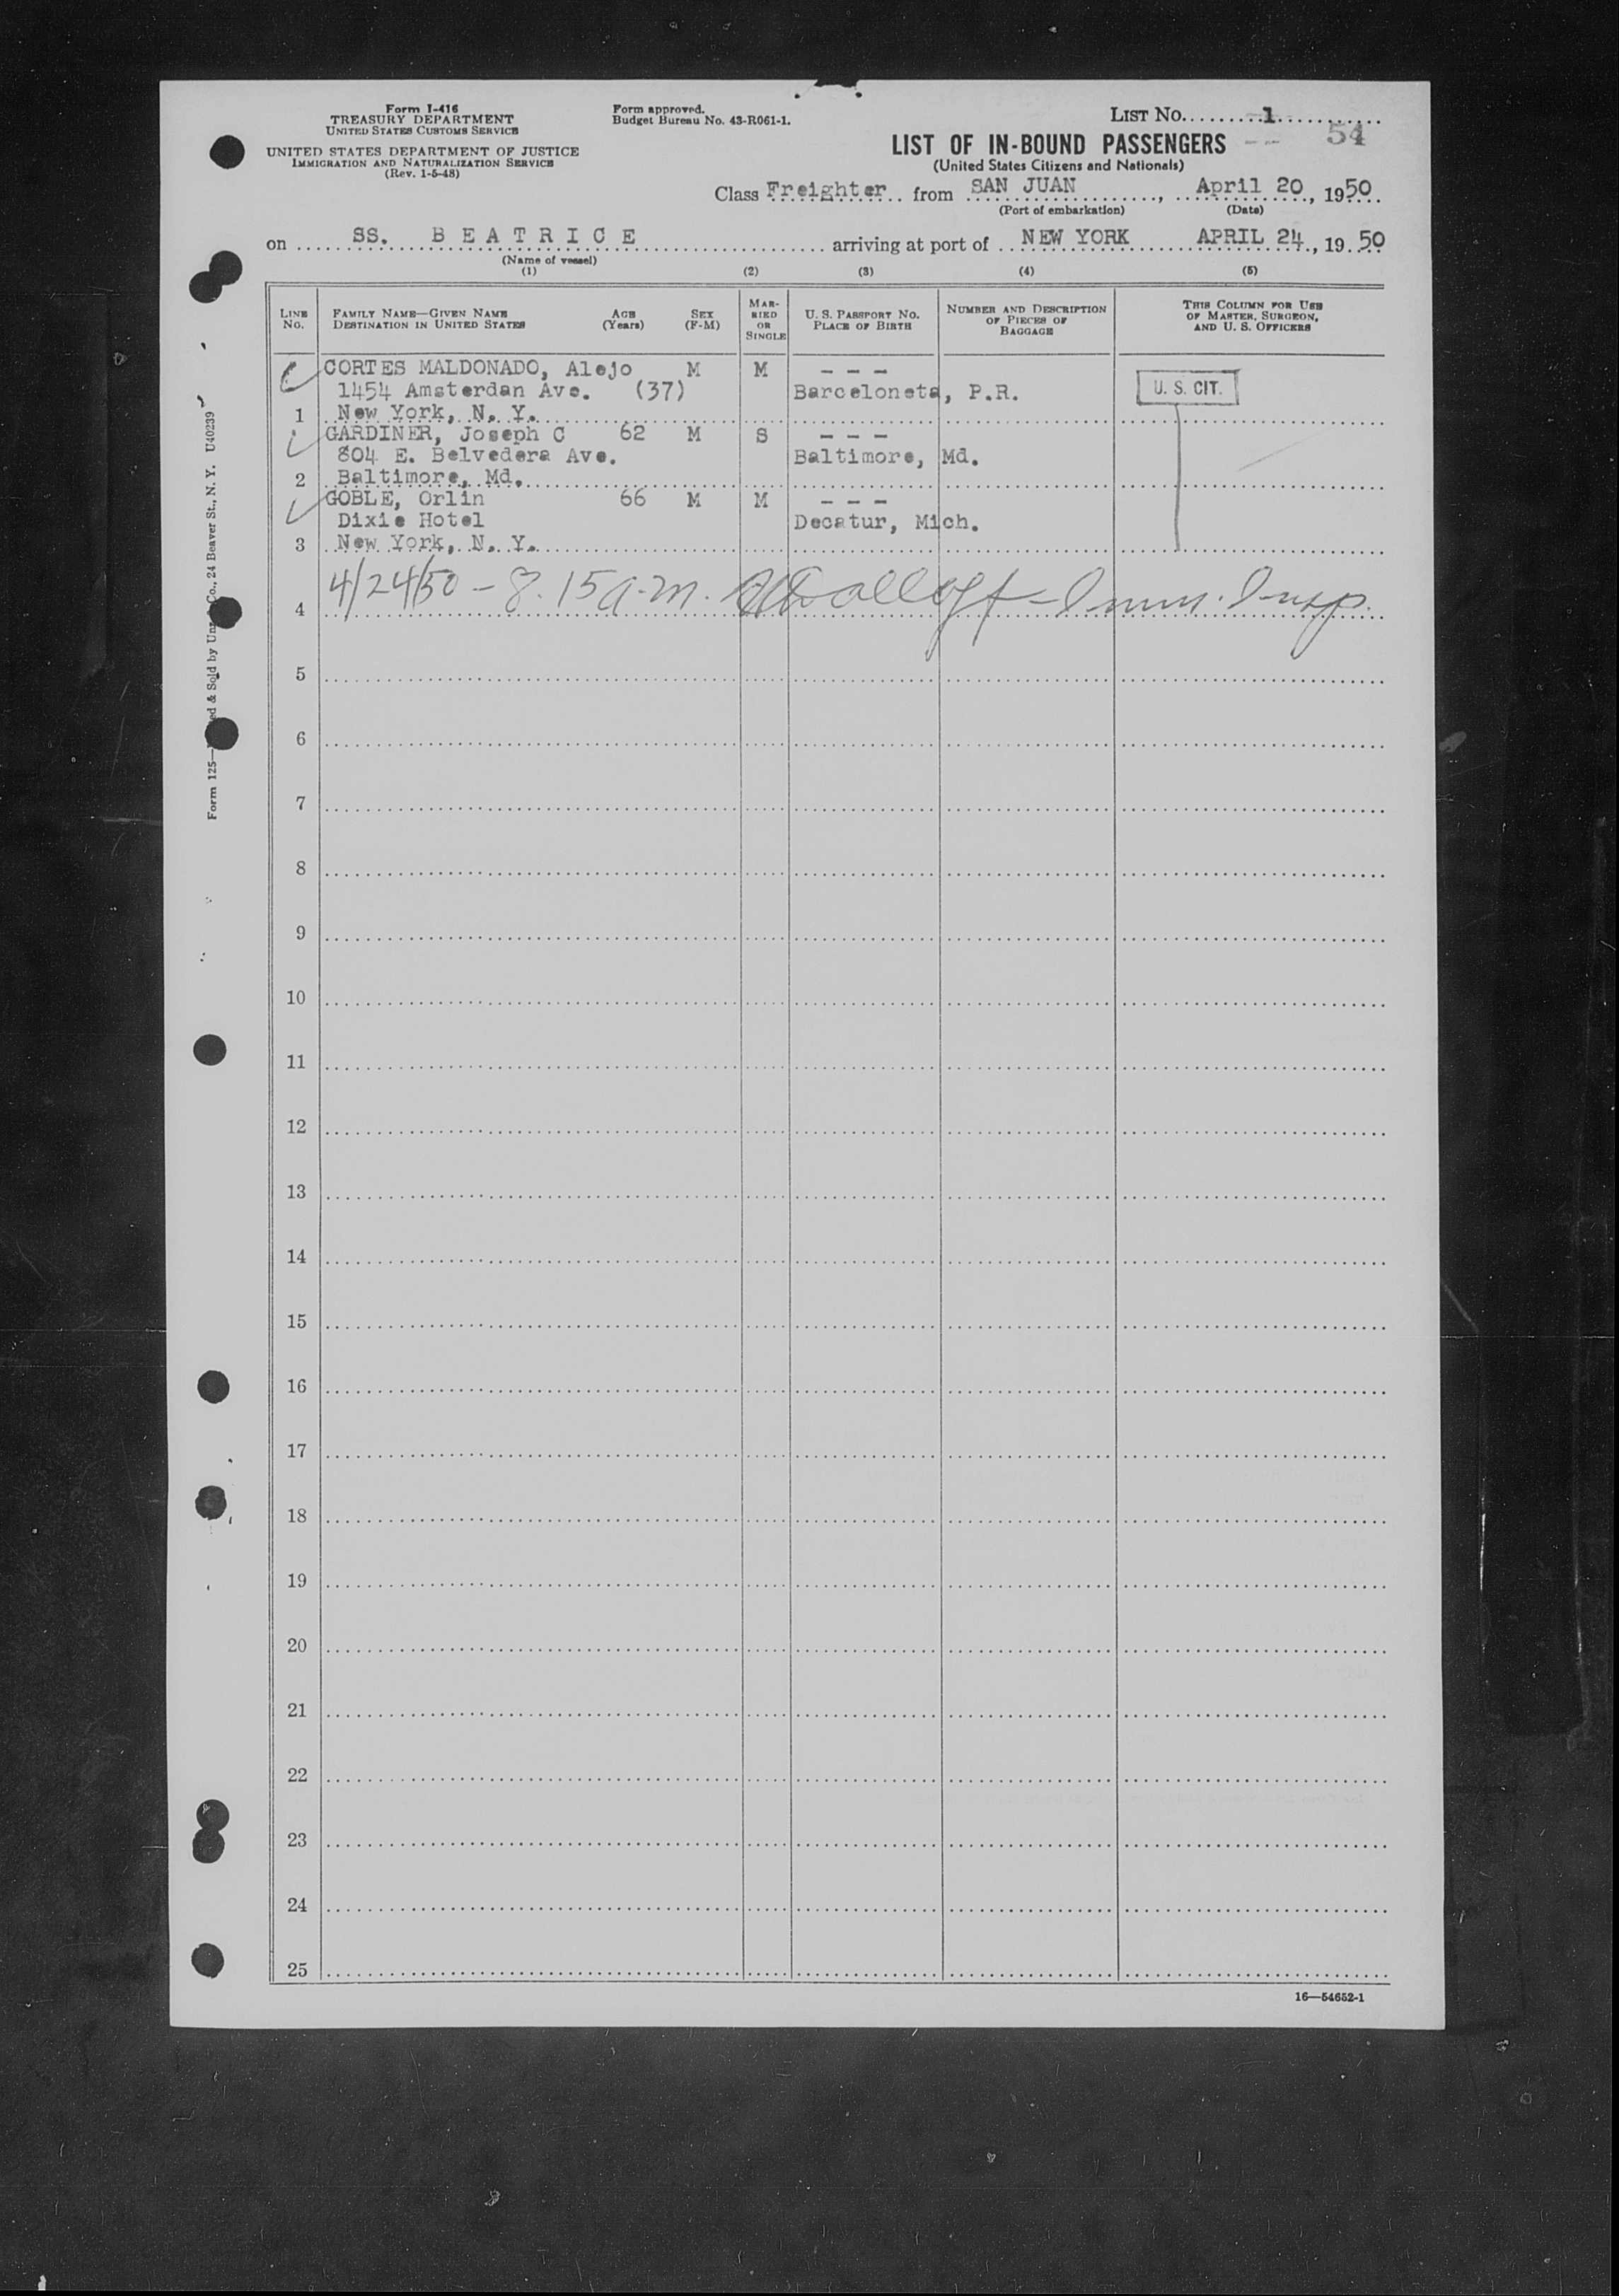 Form I-416
TREASURY DEPARTMENT
UNITED STATES CUSTOMS SERVICE
UNITED STATES DEPARTMENT OF JUSTICE
IMMIGRATION AND NATURALIZATION SERVICE
(Rev. 1-5-48)
Form approved.
Budget Bureau No. 43-R061-1.
LIST No. 1
54
LIST OF IN-BOUND PASSENGERS
(United States Citizens and Nationals)
Class Freighter from SAN JUAN, April 20, 1950
(Port of embarkation) (Date)
on SS. BEATRICE arriving at port of NEW YORK APRIL 24, 19 50
(Name of vessel)
(1) (2) (3) (4) (5)
LINE No.
FAMILY NAME—GIVEN NAME
DESTINATION IN UNITED STATES
AGE (Years)
SEX (F-M)
MARRIED OR SINGLE
U. S. PASSPORT NO.
PLACE OF BIRTH
NUMBER AND DESCRIPTION OF PIECES OF BAGGAGE
THIS COLUMN FOR USE OF MASTER, SURGEON, AND U. S. OFFICERS
CORTES MALDONADO, Alejo M M - - -
1454 Amsterdan Ave. (37) Barceloneta, P.R. U. S. CIT.
1 New York, N. Y.
GARDINER, Joseph C 62 M S - - -
804 E. Belvedera Ave. Baltimore, Md.
2 Baltimore, Md.
GOBLE, Orlin 66 M M - - -
Dixie Hotel Decatur, Mich.
3 New York, N. Y.
4 4/24/50 - 8.15 a.m. - Imm. Insp.
5
6
7
8
9
10
11
12
13
14
15
16
17
18
19
20
21
22
23
24
25
16—54652-1
Form 125— ed & Sold by Co., 24 Beaver St., N. Y. U40239